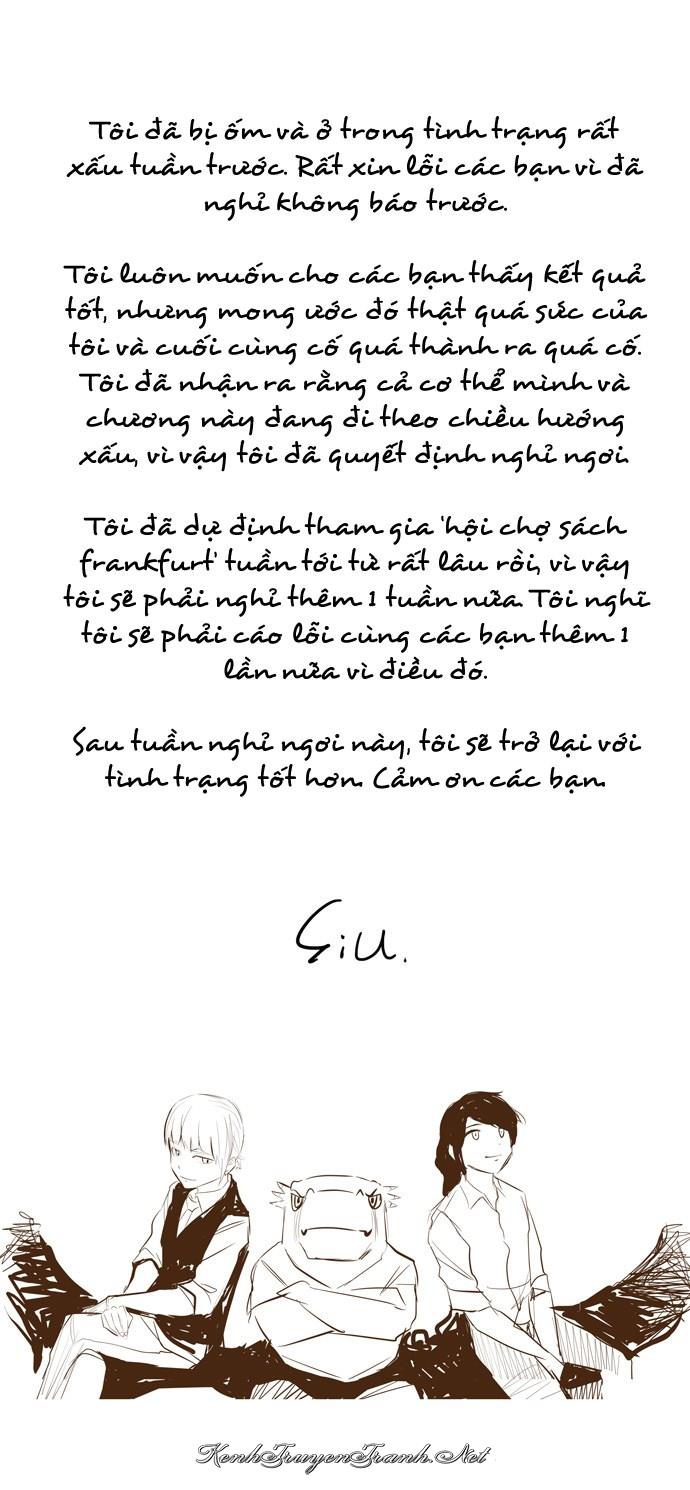 Tôi đã bị ốm và ở trong tình trạng rất
xấu tuần trước. Rất xin lỗi các bạn vì đã
nghỉ không báo trước.
Tôi luôn muốn cho các bạn thấy kết quả
tốt, nhưng mong ước đó thật quá sức của
tôi và cuối cùng cố quá thành ra quá cố.
Tôi đã nhận ra rằng cả cơ thể mình và
chương này đang đi theo chiều hướng
xấu, vì vậy tôi đã quyết định nghỉ ngơi.
Tôi đã dự định tham gia 'hội chợ sách
frankfurt' tuần tới từ rất lâu rồi, vì vậy
tôi sẽ phải nghỉ thêm 1 tuần nữa. Tôi nghĩ
tôi sẽ phải cáo lỗi cùng các bạn thêm 1
lần nữa vì điều đó.
Sau tuần nghỉ ngơi này, tôi sẽ trở lại với
tình trạng tốt hơn. Cảm ơn các bạn.
SiU.
KenhTruyenTranh.Net